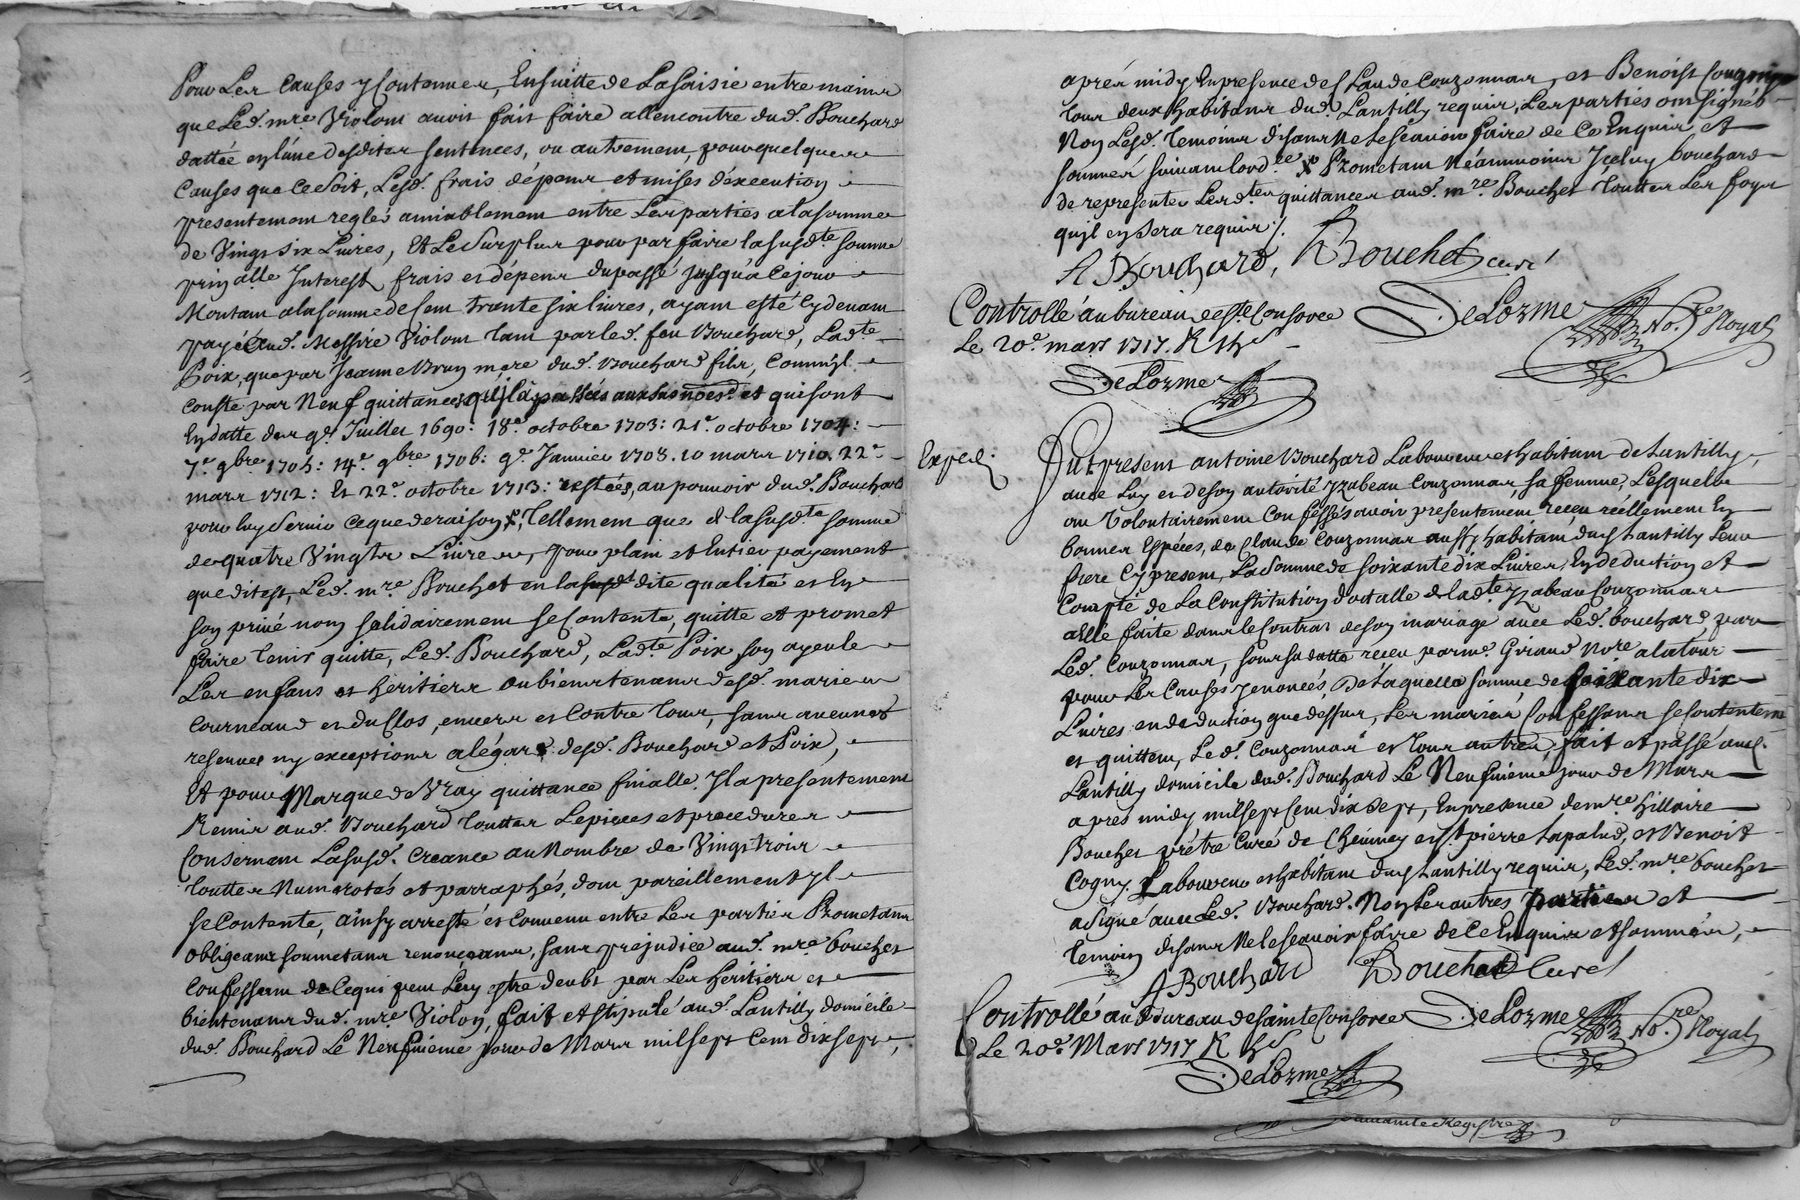 Pour Les Causes y Contenues, Ensuitte de La saisie entre mains
que Led. mre. Violom avoit fait faire allencontre dud. Bouchard
dattée en l'une desdites sentences, ou autrement, pour quelques
Causes que ce soit, Lesd. frais dépens et mises déxecution
presentement reglés amiablement entre Les parties a la somme
de Vingt six Livres, Et Le Surplus pour parfaire la susdte. somme
prinalle Interest frais et dépens du passé jusqu'a ce jour
Montant a la somme de Cent trante six livres, ayant esté cy devant
payé aud. Messire Violom tant par led. feu Bouchard, Ladte.
Poix, que par Jeanne Brun mere dud. Bouchard fils, Comm'yl
Conste par Neuf quittances qu'il a passées aux susnoés. et qui sont
En datte des 9e. Juillet 1690: 18e. octobre 1703: 21e. octobre 1704:
7e. 9bre 1705: 14e. 9bre 1706: 9e. Janvier 1708. 10 mars 1710. 22e
mars 1712: Et 22e. octobre 1713: restées, au pouvoir dud. Bouchard
pour luy Servir ce que de raison, Tellement que de la susdte. somme
de quatre Vingts Livres, pour plain et Entier payement
que dit est, Led. mre. Bouchet en la susd dite qualité et En
son privé nom solidairement se Contente, quitte et promet
faire tenir quitte, Led. Bouchard, Ladte Poix son ayeule
Les enfans et héritiers ou bientenans desd. maries
Courneaud et duClos, envers et Contre tous, sans aucunes
reserves ny exceptions a légard desd. Bouchard et Poix,
Et pour Marque de Vray quittance finalle Il a presentement
Remis aud. Bouchard touttes Les pieces et procedures
Consernant La susd. Creance au Nombre de Vingt trois
touttes Numerotés et parraphés, dont pareillement yl
se Contente, ainsy arresté et Convenu entre Les parties Prometans
obligeans soumetans renonceans, sans prejudice aud. mre. bouchet
Confessant de ce qui peut Luy estre deubt par Les heritiers et
bientenans dud. mre. Violon, fait et stipulé aud. Lantilly domicile
dud. Bouchard Le Neufvieme jour de Mars mil sept Cent dix sept,
aprés midy En presence de Claude Couzonnar, et Benoist Cougny
tous deux habitans dud. Lantilly requis, Les parties ont signés
Non Lesd. temoins disans ne le sçavoir faire de ce Enquis, et
sommés suivant lord.ce Prometant Néammoins Jceluy bouchard
de representer Lesdtes. quittances aud. mre. Bouchet touttes Les foys
qu'il en sera requis
A Bouchard, Bouchet curé
Controllé au bureau de ste. Consorce
DeLorme No.re Royal
Le 20e. mars 1717. R
DeLorme
Exped:
Fut present antoine Bouchard Laboureur et habitant de Lantilly,
avec Luy et de son autorité Yzabeau Couzonnar, sa femme, Lesquels
ont Volontairement Confessés avoir presentement reçeu réellement En
bonnes Espéces, de Claude Couzonnar aussy habitant dud Lantilly Leur
frere Cy present, La Somme de soixante dix Livres, En deduction et
Compte de La Constitution dottalle de ladte. yzabeau Couzonnar
a Elle faite dans le Contrat de son mariage avec Led. bouchard, par
Led. Couzonnar, sous sa datte reçeu par me. Giraud Nore. a latour
pour Les Causes y enoncés, De Laquelle somme de soixante dix
Livres en deduction que dessus, Les mariés Confessans se Contentent
et quittent, Led. Couzonnar et tous autres, fait et passé aud.
Lantilly domicile dud. Bouchard Le Neufvieme jour de Mars
apres midy mil sept Cent dix sept, En presence de mre. hillaire
Bouchet prétre Curé de Chevinay et St. pierre Lapalud, et Benoist
Cogny Laboureur et habitant dud Lantilly requis, Led. mre. bouchet
a signé avec Led. Bouchard. Non Les autres parties et
temoin disans Ne le sçavoir faire de ce Enquis et sommés,
A Bouchard Bouchet Curé
Controllé au Bureau de sainte Consorce
DeLorme No.re Royal
Le 20e. Mars 1717 R
DeLorme